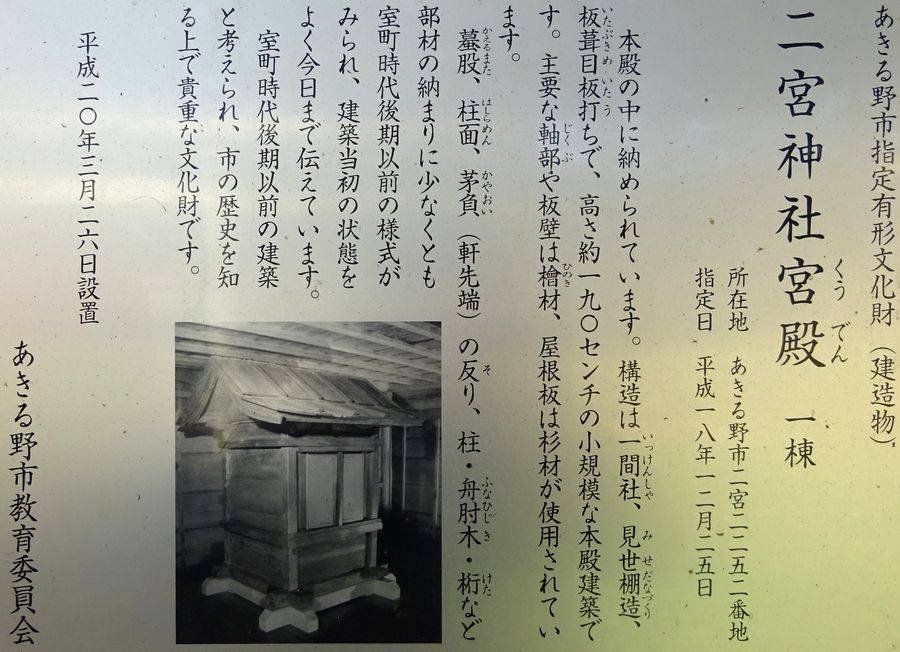 あきる野市指定有形文化財（建造物）
二宮神社宮殿　一棟
くうでん
所在地　あきる野市二宮二二五二番地
指定日　平成一八年一二月二五日
本殿の中に納められています。構造は一間社、見世棚造、
いっけんしゃ　みせだなづくり
板葺目板打ちで、高さ約一九〇センチの小規模な本殿建築で
いたぶきめいたう
す。主要な軸部や板壁は檜材、屋根板は杉材が使用されてい
じくぶ　ひのき
ます。
蟇股、柱面、茅負（軒先端）の反り、柱・舟肘木・桁など
かえるまた　はしらめん　かやおい　そ　ふなひじき　けた
部材の納まりに少なくとも
室町時代後期以前の様式が
みられ、建築当初の状態を
よく今日まで伝えています。
室町時代後期以前の建築
と考えられ、市の歴史を知
る上で貴重な文化財です。
平成二〇年三月二六日設置
あきる野市教育委員会